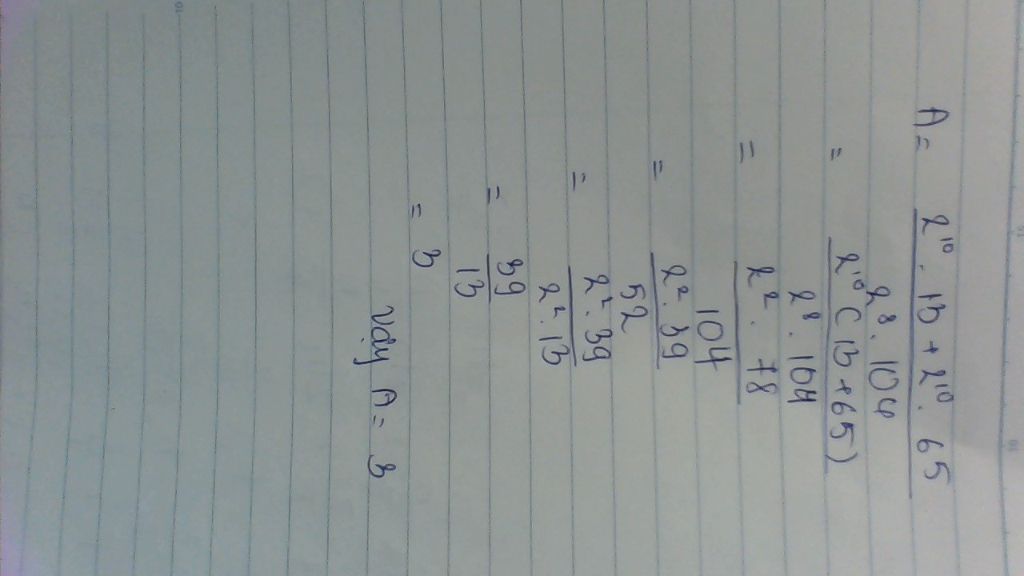 A = 2¹⁰ . 13 + 2¹⁰ . 65
2⁸ . 104
= 2¹⁰ ( 13 + 65 )
2⁸ . 104
= 2² . 78
104
= 2² . 39
52
= 2² . 39
2² . 13
= 39
13
= 3
Vậy A = 3